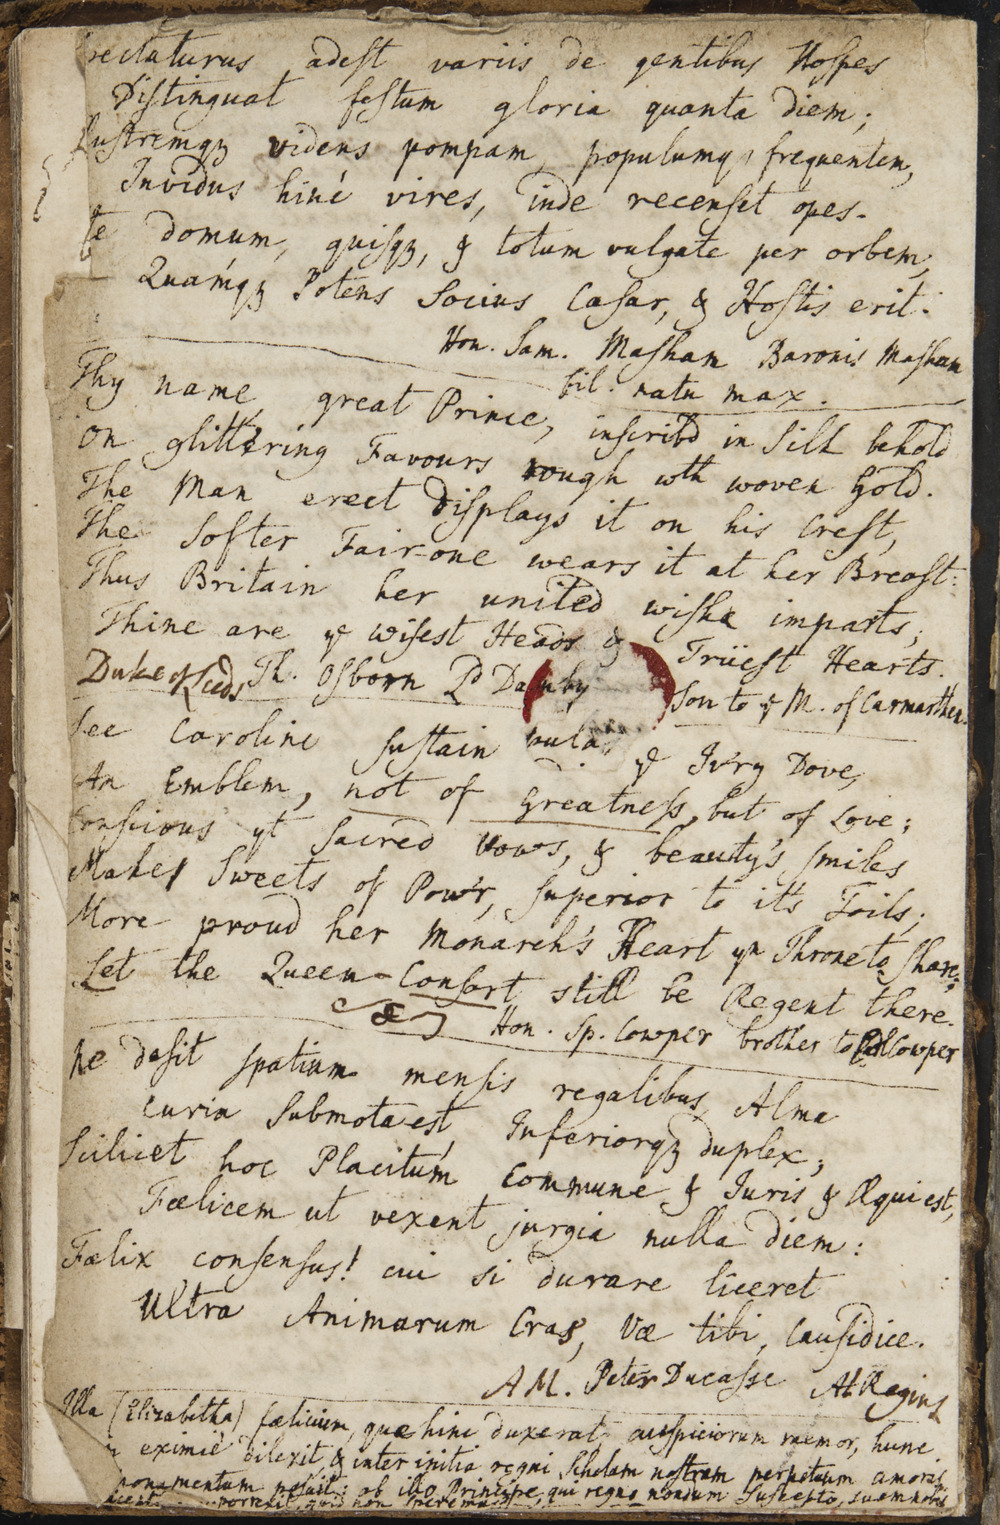 adest variis de gentibus Hospes
Distinguat festum gloria quanta diem;
videns pompam populumq, frequentem,
Invidus hinc vires, inde recenset opes.
domum, quisqȝ, & totum vulgate per orbem,
Quamqȝ Potens Socius Cæsar, & Hostis erit.
Hon. Sam. Masham Baronis Masham
fil. natu max.
Thy name, great Prince, inscrib'd in Silk behold
On glittering Favours rough wth woven Gold.
The Man erect displays it on his Crest,
The Softer Fair-one wears it at her Breast:
Thus Britain her united wishe imparts;
Thine are ye Wisest Heads & Truest Hearts.
Duke of Leeds Th. Osborn Ld Danby Son to ye M. of Carmarthen.
See Caroline sustain ye Iv'ry Dove,
An Emblem, not of Greatness, but of Love;
Conscious yt Sacred Vows, & beauty's smiles
Makes Sweets of Pow'r, superior to its Toils;
More proud her Monarch's Heart yn Throne to share;
Let the Queen-Consort still be Regent there.
Hon. Sp. Cowper brother to Cowper
Ne desit spatium mensis regalibus, Alma
Curia Submota est, Inferiorqȝ duplex;
Scilicet hoc Placitum Commune & Juris & Æqui est,
Fœlicem ut vexent jurgia nulla diem:
Fœlix consensus! cui si durare liceret
Ultra Animarum Cras, Væ tibi, Causidice.
AM. Peter Ducasse Al Regius
Illa (Elizabetha) fœlicium, quæ hinc duxerat auspiciorum memor, hunc
eximiè dilexit, & inter initia regni Scholam nostram perpetuum amoris
monumentum posuit: ob illo Principe, qui regno nondum suscepto, suam nobis
porrexit, quid non speremus